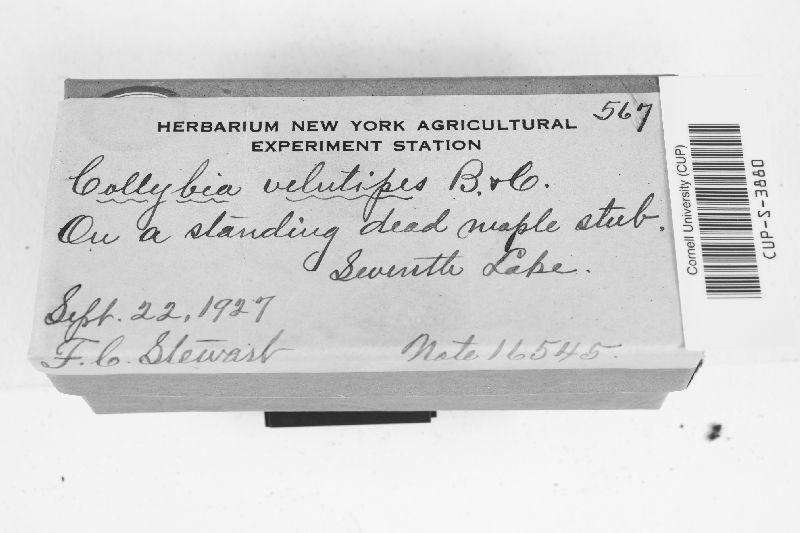 567
HERBARIUM NEW YORK AGRICULTURAL
EXPERIMENT STATION
Collybia velutipes B. & C.
On a standing dead maple stub.
Seventh Lake.
Sept. 22, 1927
F. C. Stewart
Note 16545.
Cornell University (CUP)
CUP-S-3880